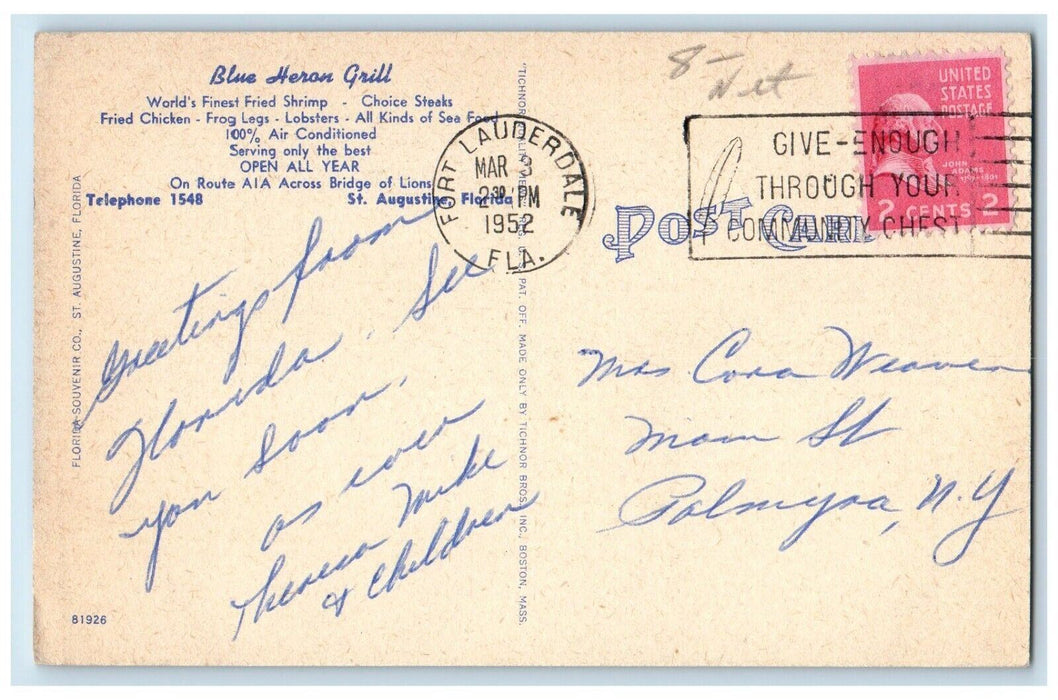 Blue Heron Grill
World's Finest Fried Shrimp - Choice Steaks
Fried Chicken - Frog Legs - Lobsters - All Kinds of Sea Food
100% Air Conditioned
Serving only the best
OPEN ALL YEAR
On Route A1A Across Bridge of Lions
Telephone 1548 St. Augustine, Florida
Greetings from
Florida. See
you soon,
as ever
Theresa Mike
& Children
FLORIDA SOUVENIR CO., ST. AUGUSTINE, FLORIDA
81926
"TICHNOR REG. U.S. PAT. OFF. MADE ONLY BY TICHNOR BROS., INC., BOSTON, MASS.
FORT LAUDERDALE
MAR 3
2 30 PM
1952
FLA.
8-
Net
GIVE-ENOUGH
THROUGH YOUR
COMMUNITY CHEST
UNITED
STATES
POSTAGE
JOHN
ADAMS
2 CENTS 2
POST CARD
Mrs. Cora Weaver
Main St
Palmyra, N.Y